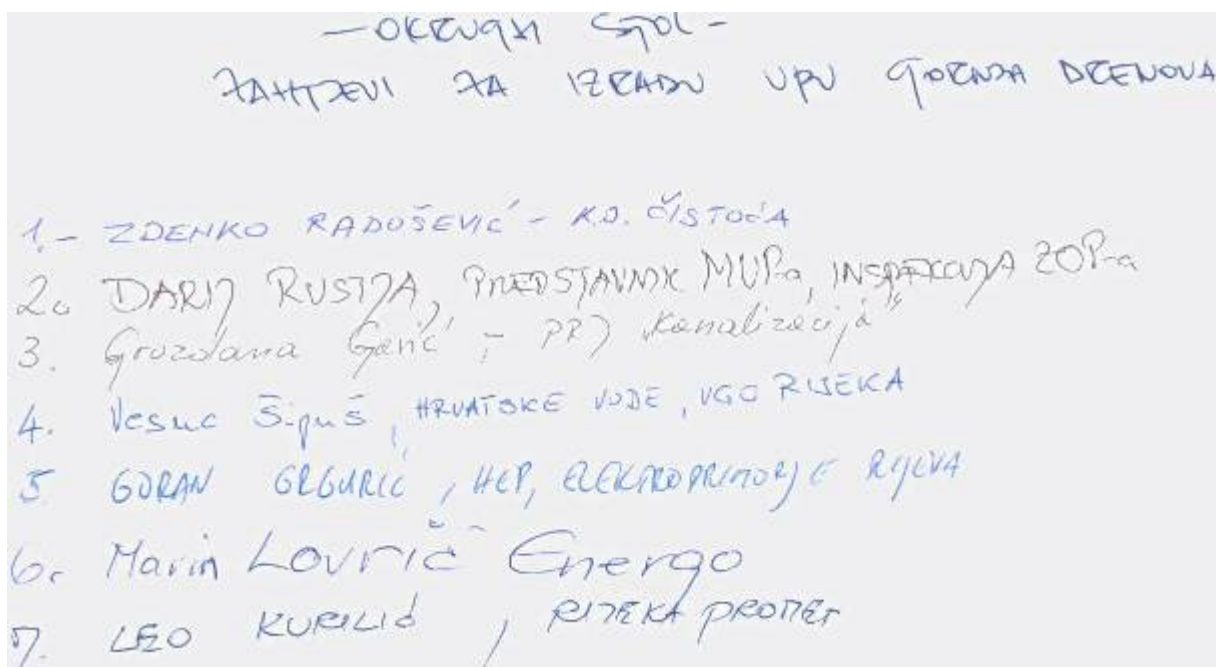 - OKRUGLI STOL -
ZAHTJEVI ZA IZRADU UPU GORNJA DRENOVA
1. - ZDENKO RADOŠEVIĆ - K.D. ČISTOĆA
2. DARIJ RUSTJA, PREDSTAVNIK MUP-a, INSPEKCIJA ZOP-a
3. Grozdana Gerić - PRJ "Kanalizacija"
4. Vesna Šipuš, HRVATSKE VODE, VGO RIJEKA
5 GORAN GRGURIĆ, HEP, ELEKTROPRIMORJE RIJEKA
6. Marin Lovrić Energo
7. LEO KURILIĆ, RIJEKA PROMET